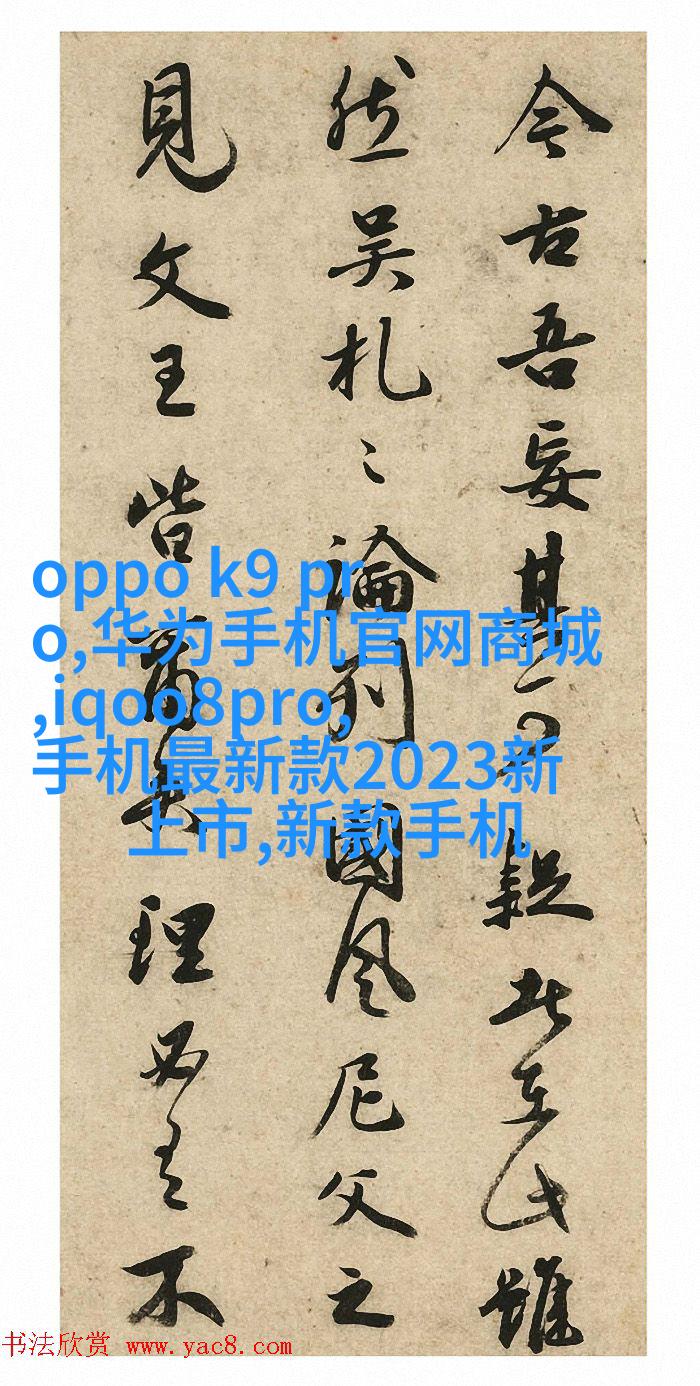 今古吾妄其
此雖
然吴札〻論列國风尼父之
見文王皆
矣理必有不
oppo k9 pr
o,华为手机官网商城
,iqoo8pro,
手机最新款2023新
上市,新款手机
书法欣赏 www.yac8.com